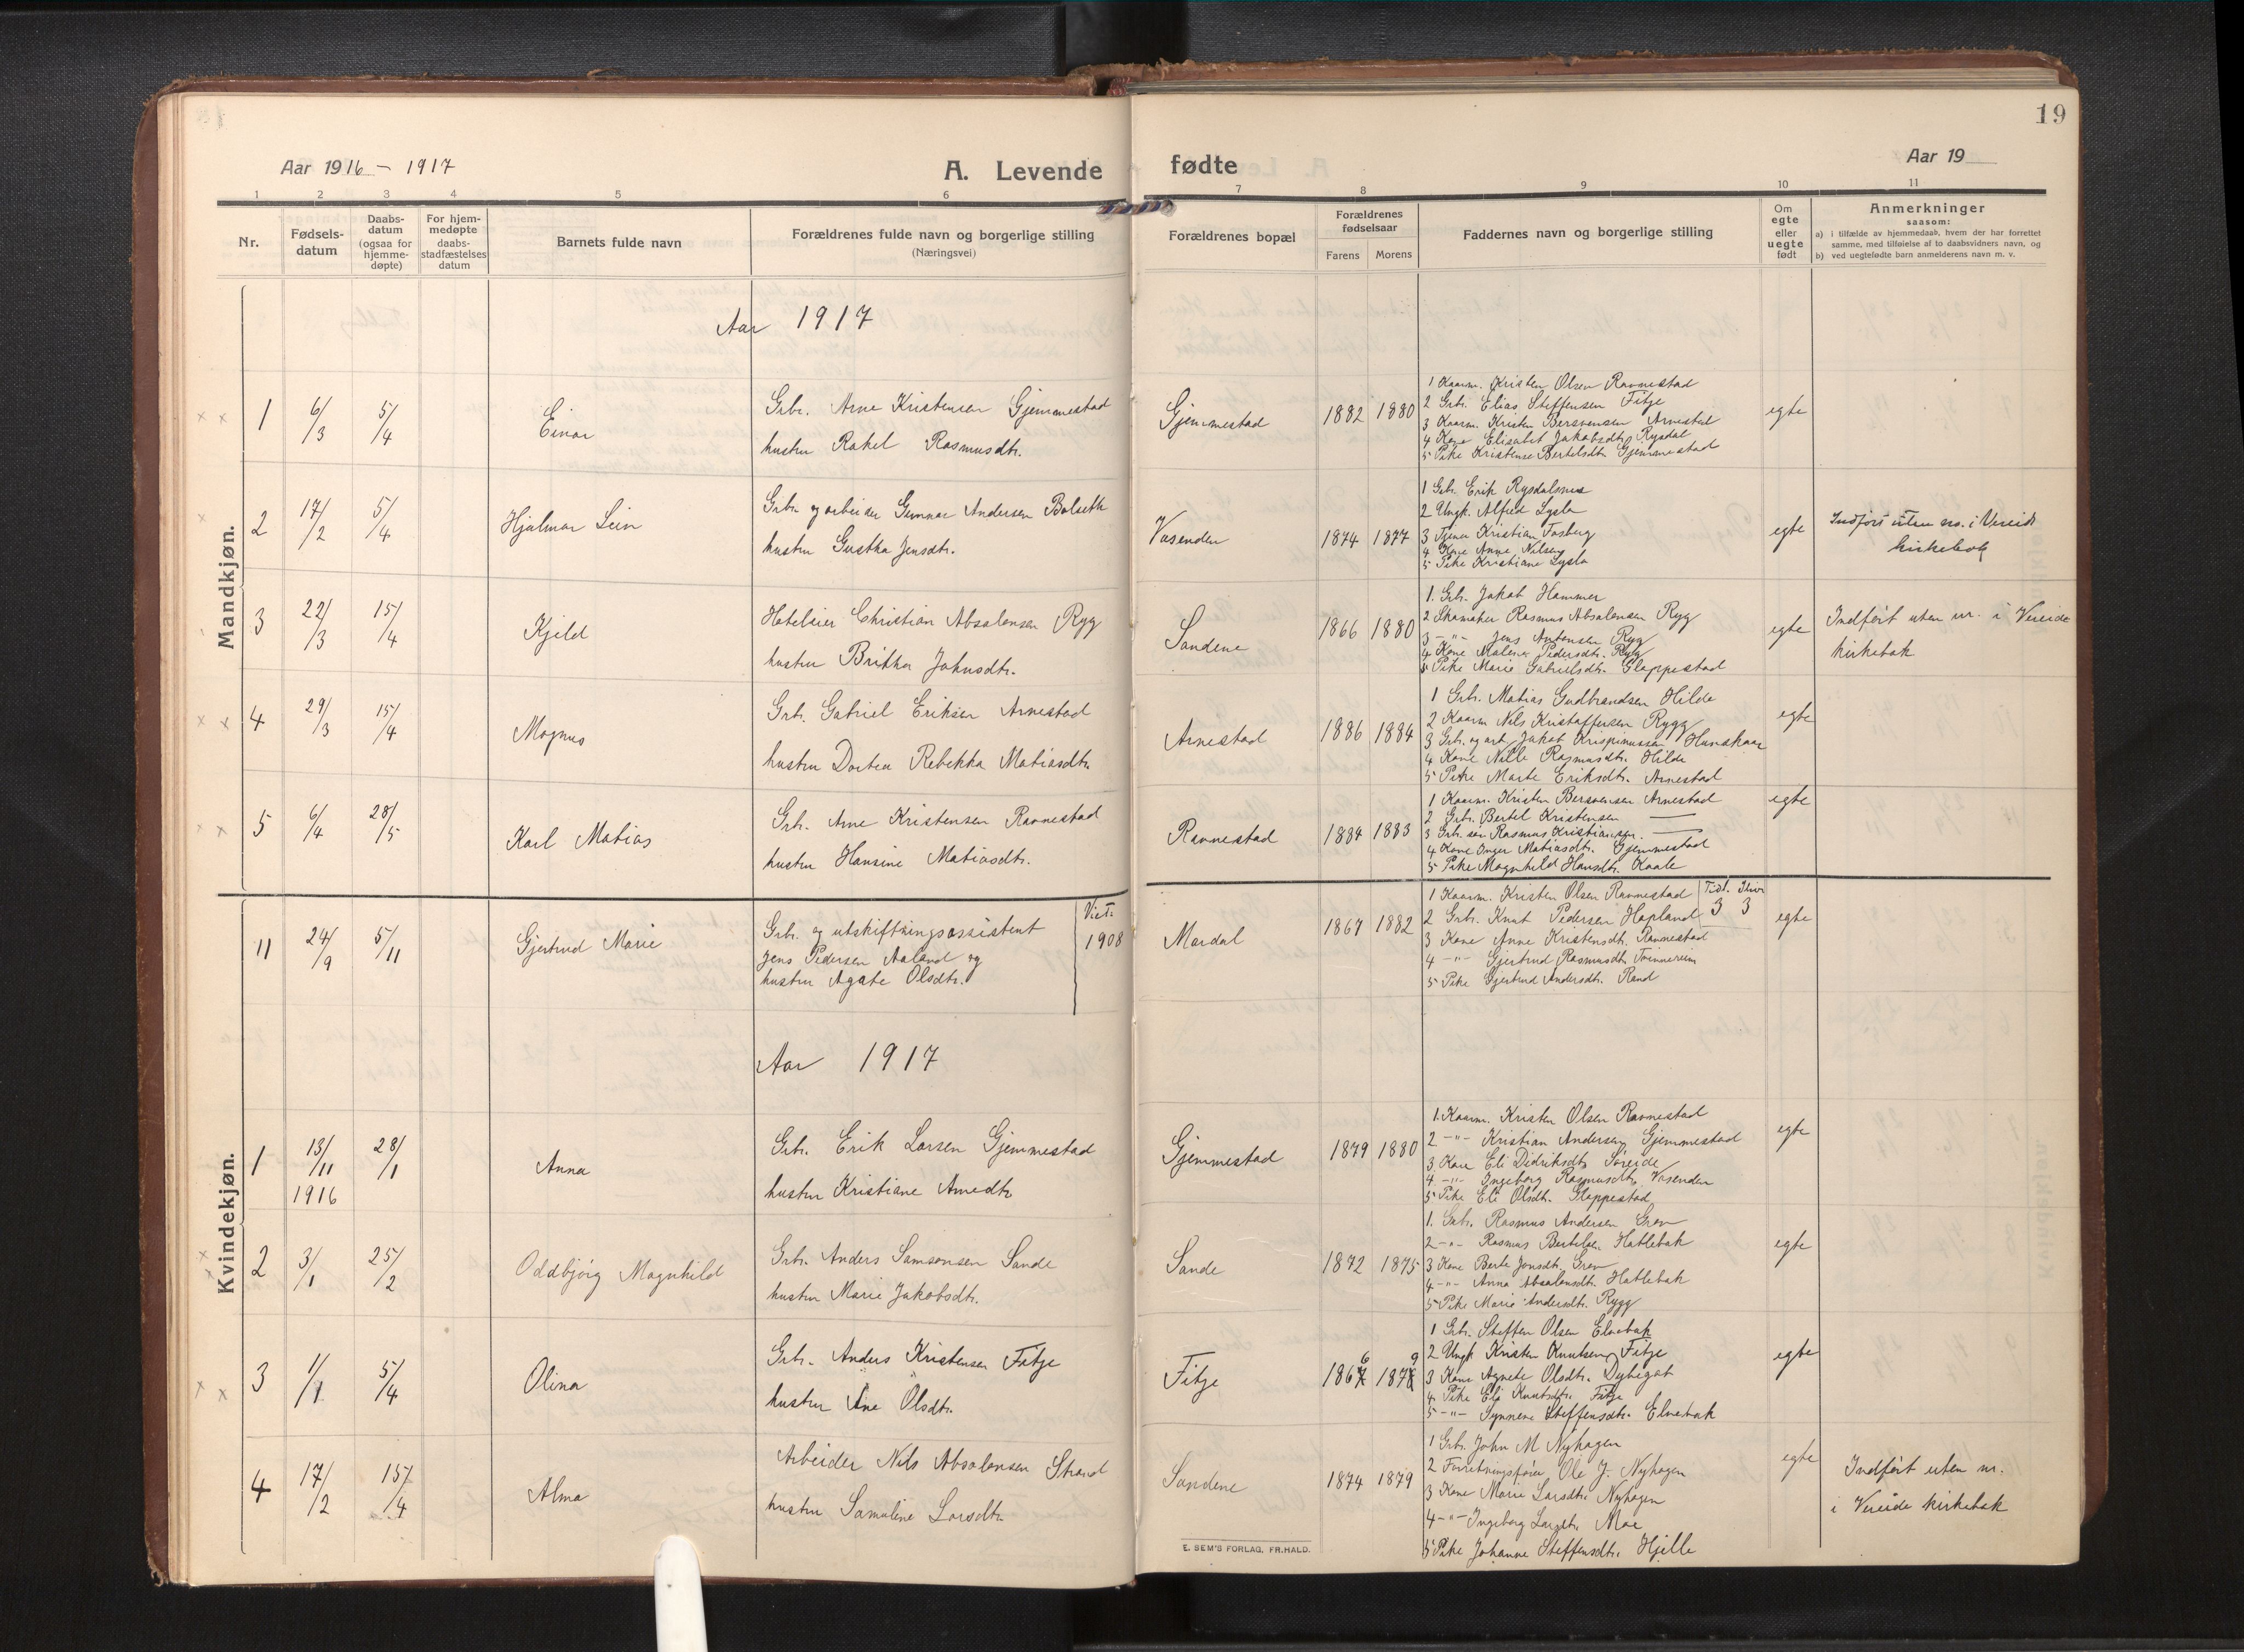 19
Aar 1916 - 1917
A. Levende fødte
Aar 19
1 2 3 4 5 6 7 8 9 10 11
Nr.
Fødsels-
datum
Daabs-
datum
(ogsaa for
hjemme-
døpte)
For hjem-
medøpte
daabs-
stadfæstelses
datum
Barnets fulde navn
Forældrenes fulde navn og borgerlige stilling
(Næringsvei)
Forældrenes bopæl
Forældrenes
fødselsaar
Farens Morens
Faddernes navn og borgerlige stilling
Om
egte
eller
uegte
født
Anmerkninger
saasom:
a) i tilfælde av hjemmedaab, hvem der har forrettet
samme, med tilføielse af to daabsvidners navn, og
b) ved uegtefødte barn anmelderens navn m. v.
Mandkjøn.
Aar 1917
1 6/3 5/4 Einar
Grbr. Arne Kristensen Gjemmestad
hustru Rakel Rasmusdtr.
Gjemmestad 1882 1880
1 Kaarm. Kristen Olsen Ravnestad
2 Grbr. Elias Steffensen Fitje
3 Kaarm. Kristen Bersvensen Arnestad
4 Kone Elisabet Jakobsdtr. Rysdal
5 Pike Kristense Bertelsdtr. Gjemmestad
egte
2 17/2 5/4 Hjalmar Lein
Grbr. og arbeider Gunnar Andersen Bolseth
hustru Gustha Jensdtr.
Vasenden 1874 1877
1 Grbr. Erik Rysdalsnes
2 Ungk. Alfred Lysla
3 Tjener Kristian Fosberg
4 Kone Anne Nilsen
5 Pike Kristiane Lysla
egte
Indført uten nr. i Vereide
kirkebok
3 22/3 15/4 Kjild
Hoteleier Christian Absalonsen Ryg
hustru Britha Johnsdtr.
Sandene 1866 1880
1. Grbr. Jakob Hammer
2 Skomaker Rasmus Absalonsen Ryg
3 -"- Jens Antonsen Ryg
4 Kone Malene Pedersdtr. Ryg
5 Pike Marie Gabrielsdtr. Gloppestad
egte
Indført uten nr. i Vereide
kirkebok
4 29/3 15/4 Magnus
Grb. Gabriel Eriksen Arnestad
hustru Dortea Rebekka Matiasdtr.
Arnestad 1886 1884
1 Grbr. Matias Gudbrandsen Hilde
2 Kaarm Nils Kristoffersen Rygg
3 Grb. og arb. Jakob Krispinussen Hunskaar
4 Kone Nille Rasmusdtr. Hilde
5 Pike Marte Eriksdtr. Arnestad
egte
5 6/4 28/5 Karl Matias
Grb. Arne Kristensen Ravnestad
hustru Hansine Matiasdtr.
Ravnestad 1884 1883
1 Kaarm. Kristen Bersvensen Arnestad
2 Grb. Bertel Kristensen —
3 Grb. søn Rasmus Kristiansen. —
4 Kone Inger Matiasdtr. Gjemmestad
5 Pike Magnhild Hansdtr. Kaale
egte
Kvindekjøn.
11 24/9 5/11 Gjertrud Marie
Grb. og utskiftningsassistent
Jens Pedersen Aaland og
hustru Agate Olsdtr.
Viet:
1908
Mardal 1867 1882
1 Kaarm. Kristen Olsen Ravnestad
2 Grb. Knut Pedersen Hopland
3 Kone Anne Kristensdtr. Ravnestad
4 -"- Gjertrud Rasmusdtr.
5 Pike Gjertrud Andersdtr. Rand
3 3
egte
Aar 1917
1 13/11 1916 28/1 Anna
Grb. Erik Larsen Gjemmestad
hustru Kristiane Arnedtr
Gjemmestad 1879 1880
1. Kaarm. Kristen Olsen Ravnestad
2 -"- Kristian Andersen Gjemmestad
3. Kone Eli Didriksdtr. Søreide
4 -"- Ingeborg Rasmusdtr. Vasenden
5 Pike Eli Olsdtr. Gloppestad
egte
2 3/1 25/2 Oddbjørg Magnhild
Grb. Anders Samsonsen Sande
hustru Marie Jakobsdtr.
Sande 1872 1875
1. Grb. Rasmus Andersen Grov
2 -"- Rasmus Bertelsen Hatlebak
3 Kone Berte Jonsdtr. Grov
4 -"- Anna Absalonsdtr. Hatlebak
5 Pike Marie Andersdtr. Rygg
egte
3 1/1 5/4 Olina
Grb. Anders Kristensen Fitje
hustru Ane Olsdtr.
Fitje 1866 1879
1 Grb. Steffen Olsen Elvebak
2 Ungk Kristen Knutsen Fitje
3 Kone Agnete Olsdtr. Dybegot
4 Pike Eli Knutsdtr. Fitje
5 -"- Synneve Steffensdtr. Elvebak
egte
4 17/2 15/4 Alma
Arbeider Nils Absalonsen Strand
hustru Samuline Larsdtr.
Sandene 1874 1879
1 Grb. John M Nyhagen
2 Forretningsfører Ole J. Nyhagen
3 Kone Marie Larsdtr. Nyhagen
4 -"- Ingeborg Larsdtr. Moe
5 Pike Johanne Steffensdtr. Hjelle
egte
Indført uten nr.
i Vereide kirkebok
E. SEM'S FORLAG, FR.HALD.